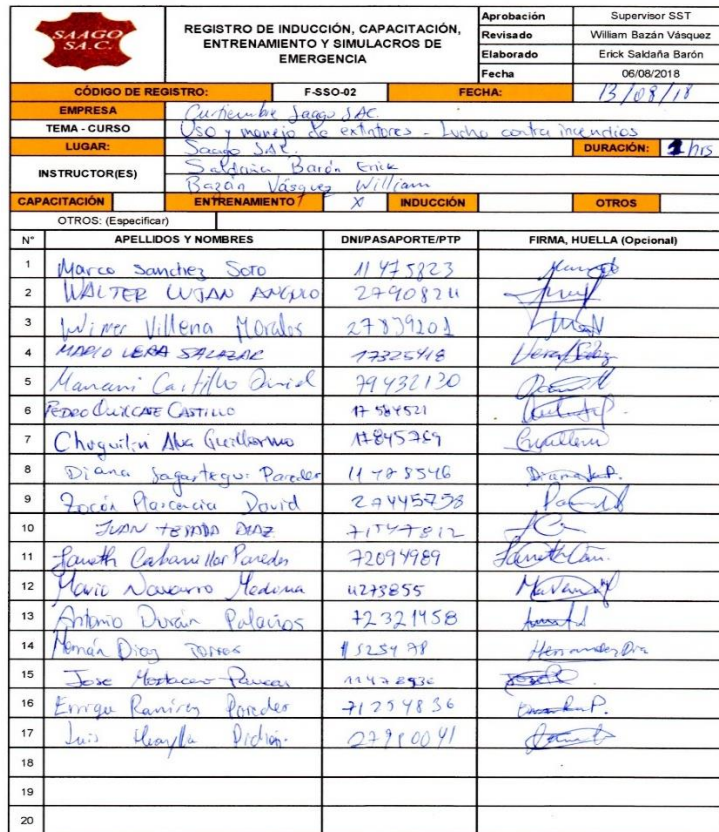 SAAGO
S.A.C.
REGISTRO DE INDUCCIÓN, CAPACITACIÓN,
ENTRENAMIENTO Y SIMULACROS DE
EMERGENCIA
Aprobación Supervisor SST
Revisado William Bazán Vásquez
Elaborado Erick Saldaña Barón
Fecha 06/08/2018
CÓDIGO DE REGISTRO: F-SSO-02 FECHA: 13/08/18
EMPRESA Curtiembre Saago SAC.
TEMA - CURSO Uso y manejo de extintores - Lucha contra incendios
LUGAR: Saago SAC. DURACIÓN: hrs
INSTRUCTOR(ES) Saldaña Barón Erick
Bazán Vásquez William
CAPACITACIÓN ENTRENAMIENTO X INDUCCIÓN OTROS
OTROS: (Especificar)
N° APELLIDOS Y NOMBRES DNI/PASAPORTE/PTP FIRMA, HUELLA (Opcional)
1 Marco Sanchez Soto 11475823
2 WALTER LUJAN ANGULO 27908211
3 Wimer Villena Morales 27839201
4 MARIO VERA SALAZAR 17325418
5 Mamani Castillo Daniel 79432130
6 PEDRO QUILCATE CASTILLO 17584521
7 Choquilin Alva Guillermo 17845769
8 Diana Sagastegui Paredes 11778546
9 Plasencia David 27445758
10 JUAN TEJADA DIAZ 71547812
11 Janeth Cabanillas Paredes 72094989
12 Mario Navarro Medina 4273855
13 Antonio Durán Palacios 72321458
14 Hernán Diaz Torres
15 Jose 11478936
16 Enrique Ramírez Paredes 71254836
17 Luis 27980041
18
19
20